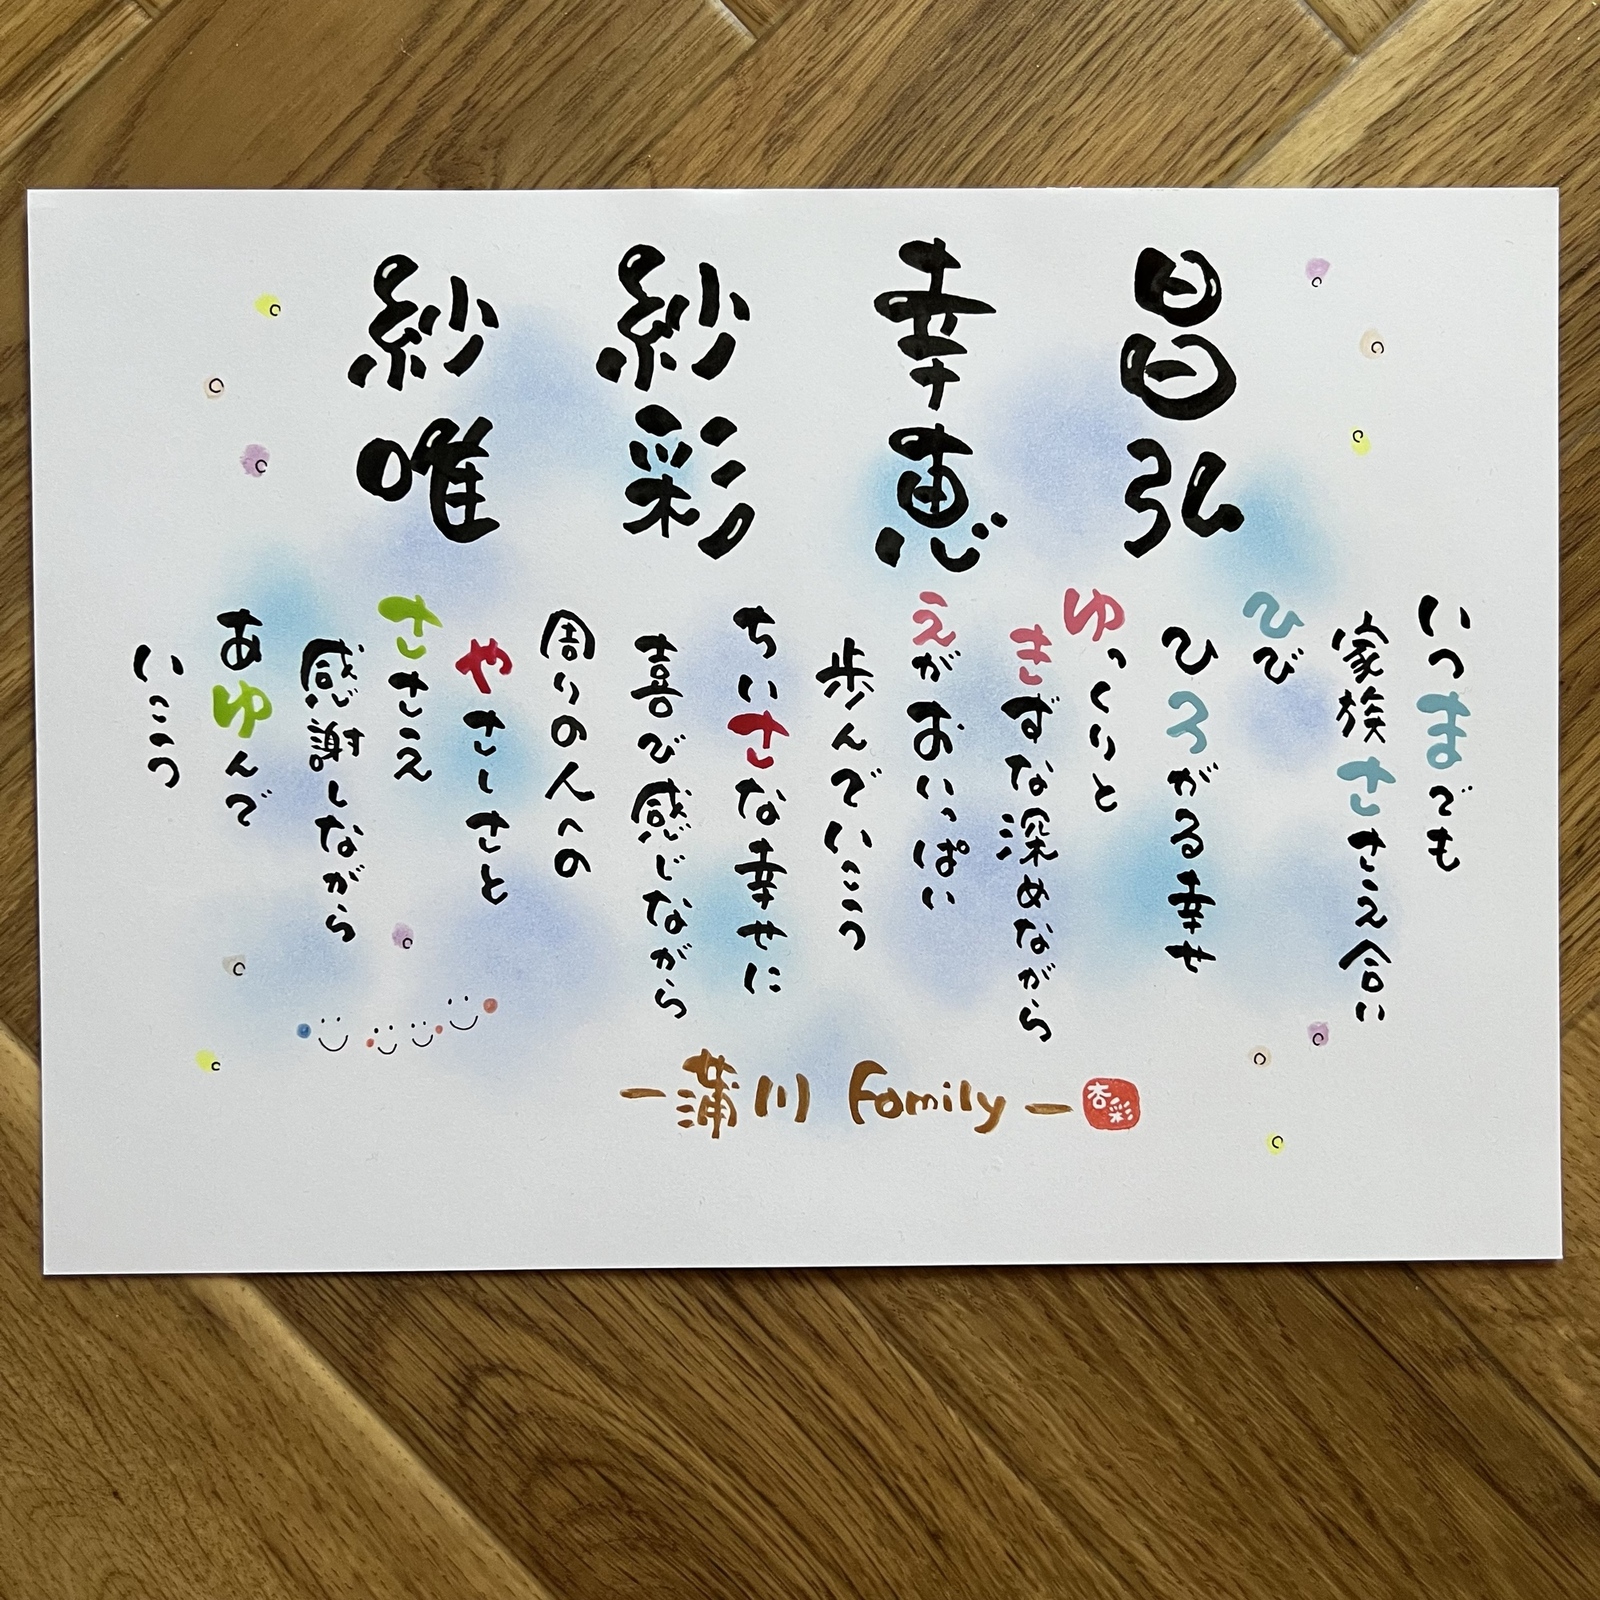 昌弘
幸恵
紗彩
紗唯
いつまでも
家族ささえ合い
ひび
ひろがる幸せ
ゆっくりと
きずな深めながら
えがおいっぱい
歩んでいこう
ちいさな幸せに
喜び感じながら
周りの人への
やさしさと
ささえ
感謝しながら
あゆんで
いこう
ー蒲川 Family ー
杏彩